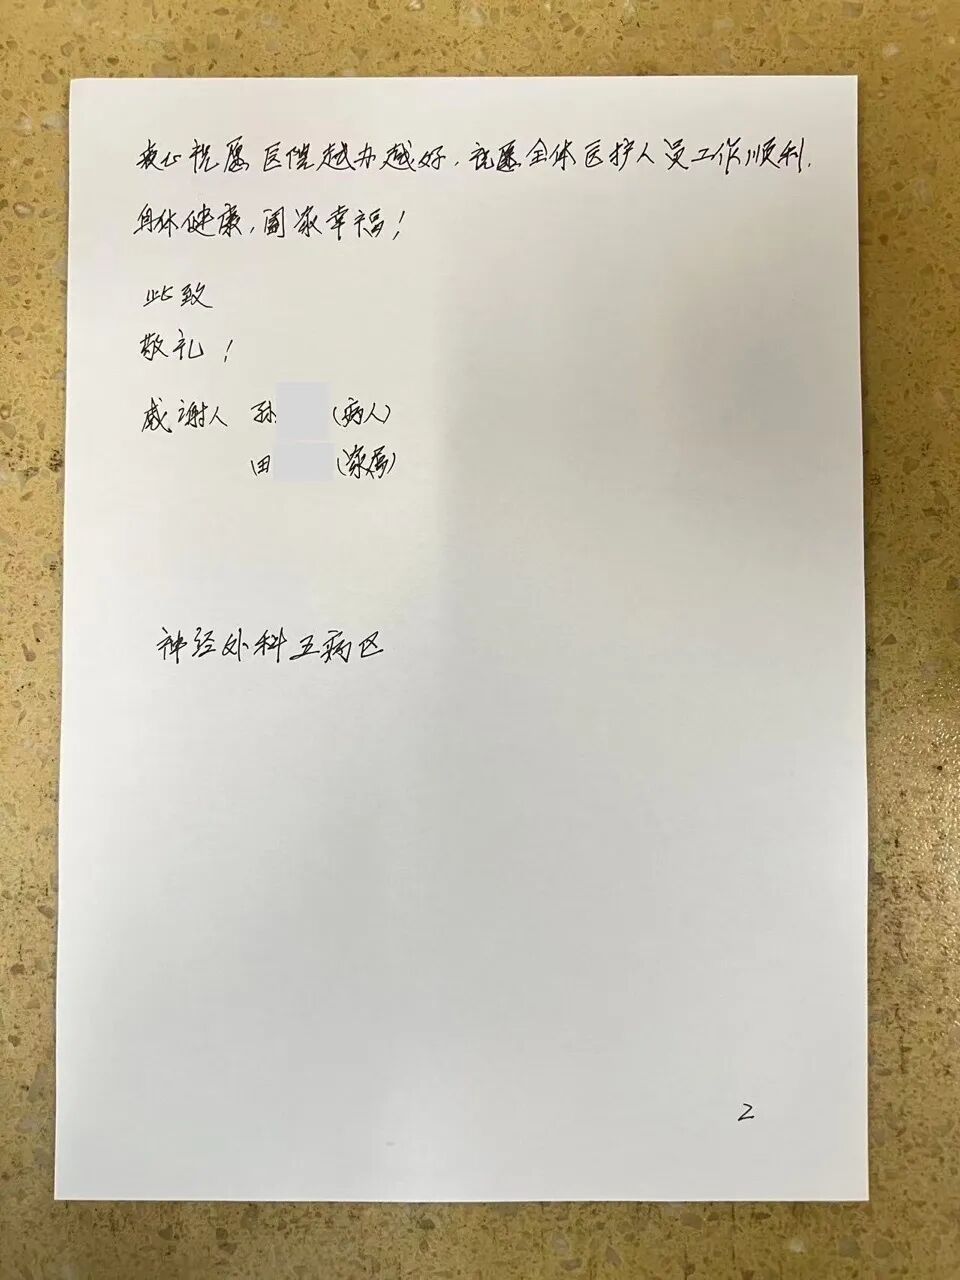 衷心祝愿医院越办越好，祝愿全体医护人员工作顺利，
身体健康，阖家幸福！
此致
敬礼！
感谢人 孙 (病人)
田 (家属)
神经外科五病区
2